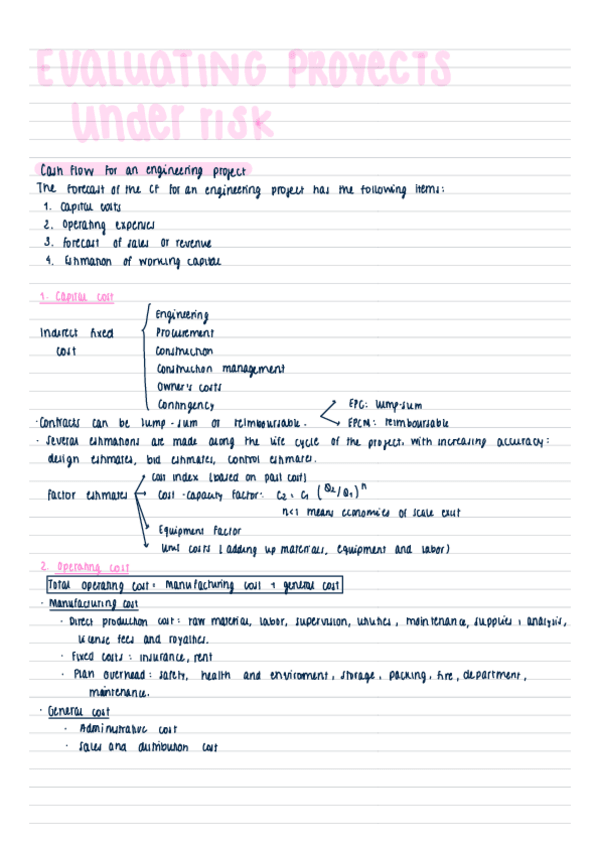 EVALUATING PROYECTS
under risk
Cash flow for an engineering project
The forecast of the CF for an engineering project has the following items:
1. Capital costs
2. Operating expenses
3. Forecast of sales or revenue
4. Estimation of working capital
1. Capital cost
Indirect fixed cost
Engineering
Procurement
Construction
Construction management
Owner's costs
Contingency
EPC: lump-sum
· Contracts can be lump-sum or reimboursable.
EPCM: reimboursable
· Several estimations are made along the life cycle of the project. With increasing accuracy:
design estimates, bid estimates, control estimates.
Cost index (based on past cost)
Factor estimates
Cost-capacity factor: C2 = C1 (Q2/Q1)^n
n<1 means economies of scale exist
Equipment factor
Unit costs (adding up materials, equipment and labor)
2. Operating cost
Total operating cost = manufacturing cost + general cost
· Manufacturing cost
· Direct production cost: raw material, labor, supervision, utilities, maintenance, supplies, analysis,
license fees and royalties.
· Fixed costs: insurance, rent
· Plan overhead: safety, health and enviroment, storage, packing, fire, department,
maintenance.
· General cost
· Administrative cost
· Sales and distribution cost